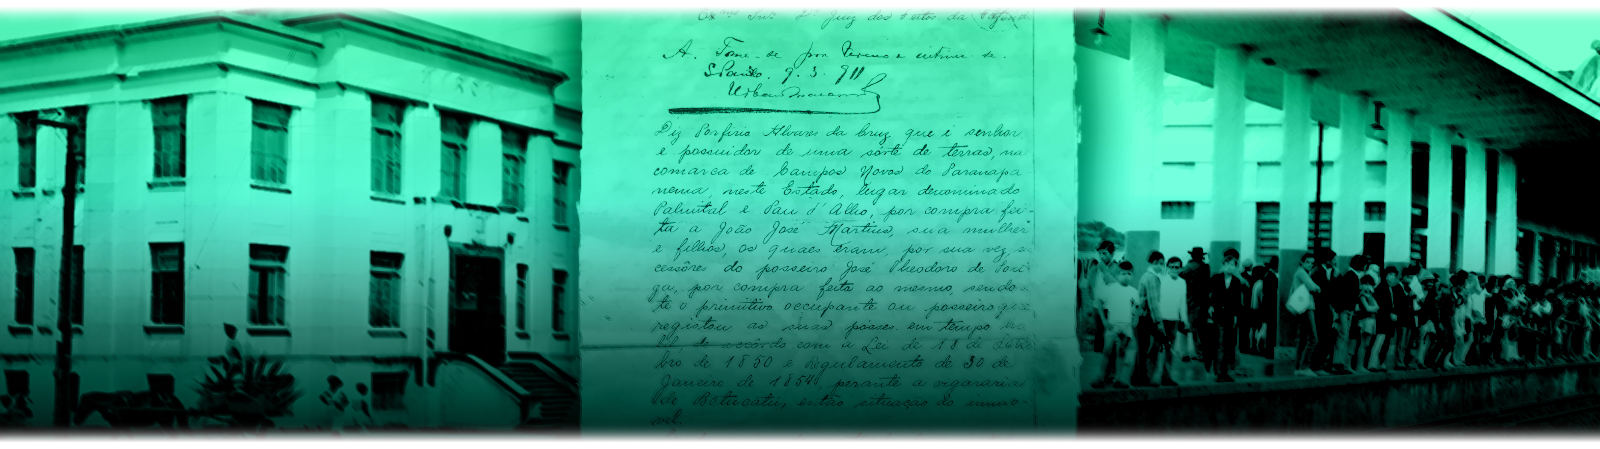 Exmo Snr. Dr. Juiz dos Feitos da Fazenda
A. Tome-se por termo e intime-se.
S. Paulo. 9. 3. 911
Urbano
Diz Porfirio Alvares da Cruz, que é senhor
e possuidor de uma sorte de terras, na
comarca de Campos Novos do Paranapa
nema, neste Estado, lugar denominado
Palmital e Pau d'Alho, por compra fei-
ta a João José Martins, sua mulher
e filhos, os quaes eram, por sua vez, su
cessôres do posseiro José Theodoro de Sou
za, por compra feita ao mesmo, sendo es
te o primitivo occupante ou posseiro que
registou as suas posses em tempo ha
bil de accôrdo com a Lei de 18 de
bro de 1850 e Regulamento de 30 de
Janeiro de 1854 perante a vigararia
de Botucatú, então situação do immo-
vel.